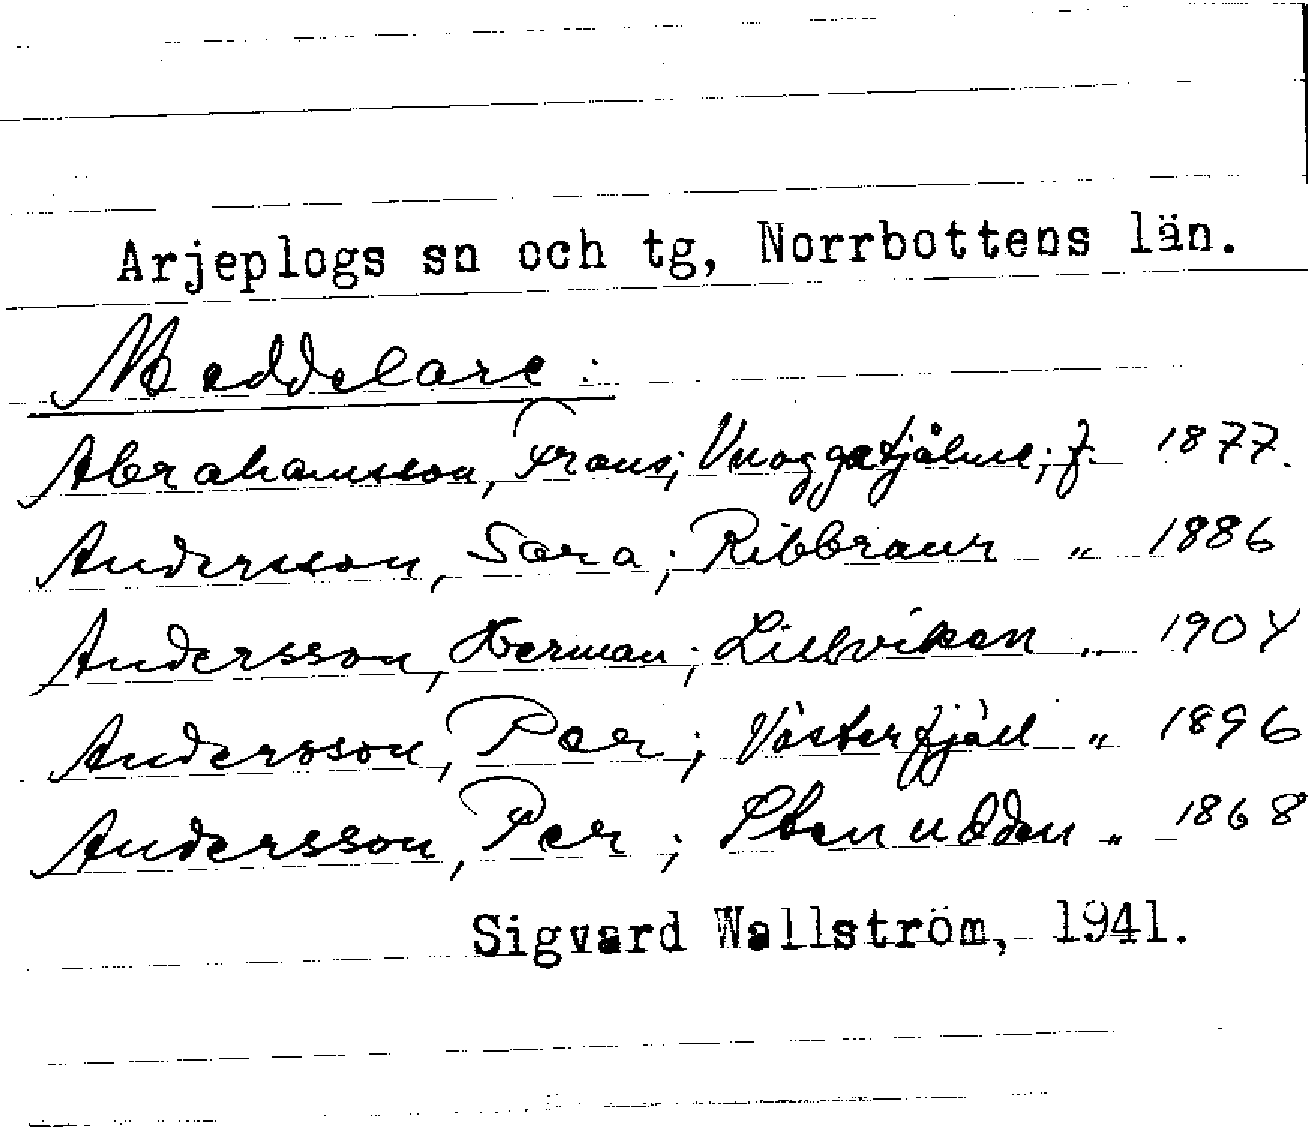 Arjeplogs sn och tg, Norrbottens län.
Meddelare:
Abrahamsson, Frans; Vuoggatjålme; f. 1877.
Andersson, Sara; Ribbraur " 1886
Andersson, Herman; Lillviken " 1904
Andersson, Per; Västerfjäll " 1896
Andersson, Per; Stenudden " 1868
Sigvard Wallström, 1941.